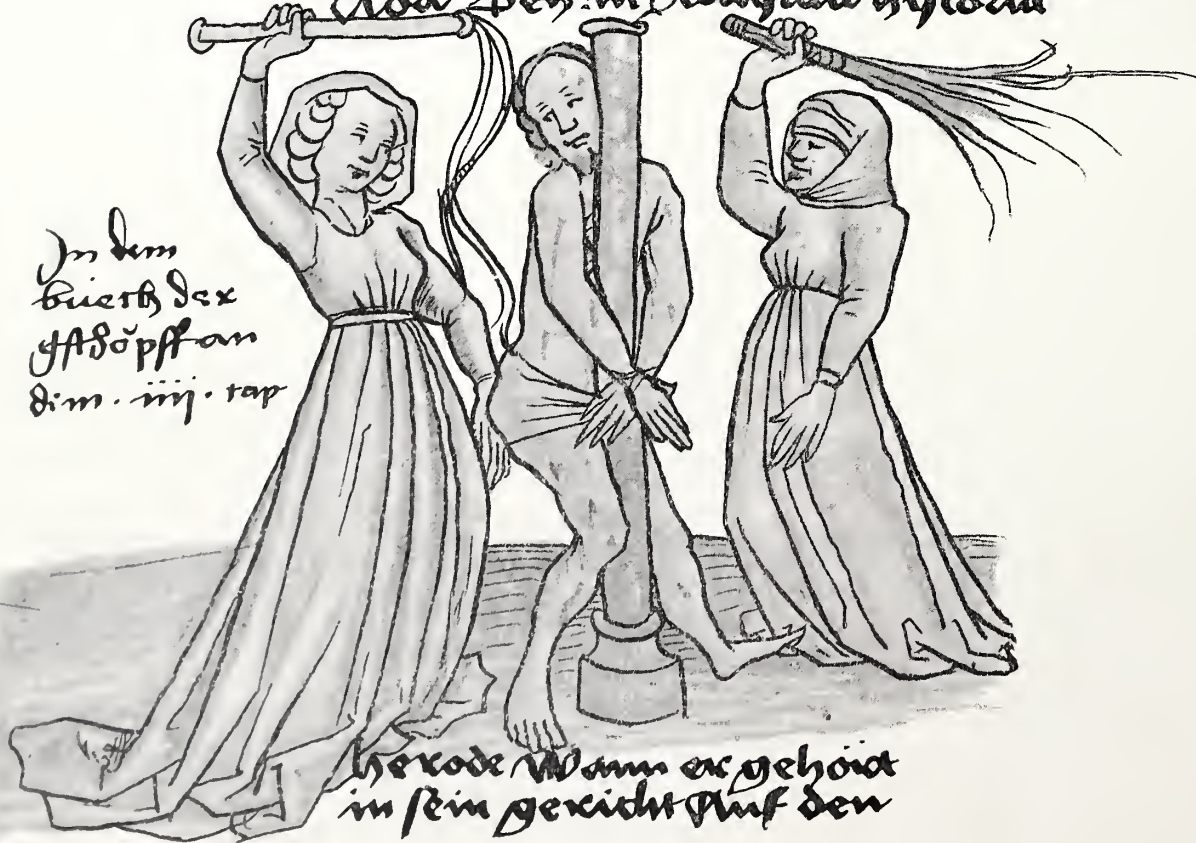 In dem
buech der
gschöpff an
dem . iiij . cap
herode Wann er gehört
in sein gericht Auf den